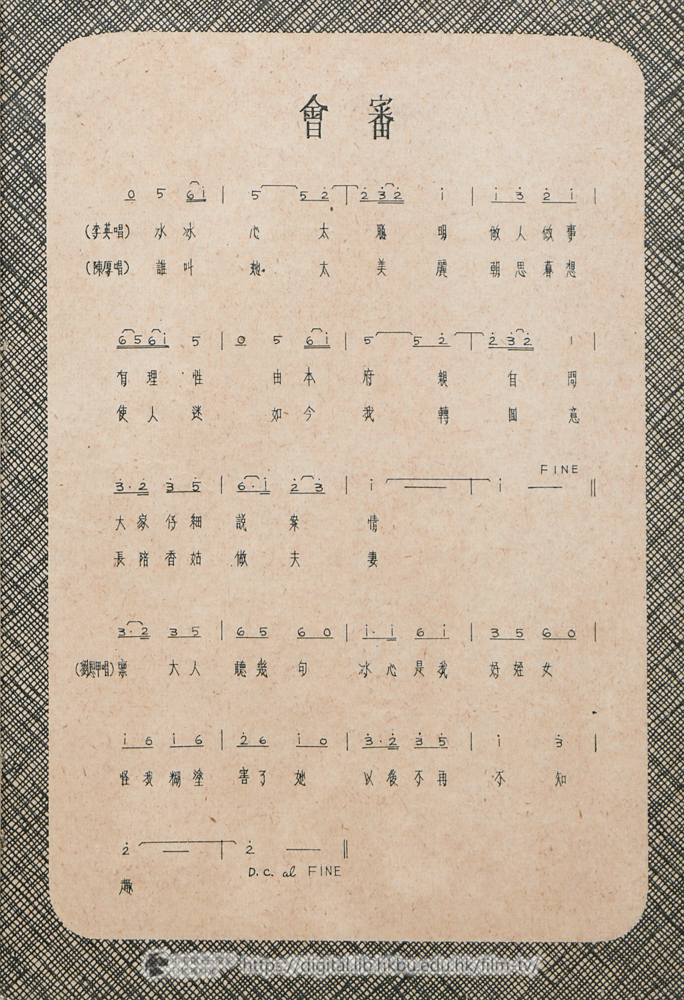 會審
0 5 6 i | 5 5 2 | 2 3 2 i | i 3 2 i |
(李英唱) 水冰心太聰明 做人做事
(陳厚唱) 誰叫她太美麗 朝思暮想
6 5 6 i 5 | 0 5 6 i | 5 5 2 | 2 3 2 i |
有理性 由本府親自問
使人迷 如今我轉回意
FINE
3·2 3 5 | 6·i 2 3 | i — | i — ‖
大家仔細說案情
長陪香姑做夫妻
3·2 3 5 | 6 5 6 0 | i·i 6 i | 3 5 6 0 |
稟大人聽幾句 冰心是我好姪女
i 6 i 6 | 2 6 i 0 | 3·2 3 5 | i 3 |
怪我糊塗害了她 以後不再不知
2 — | 2 — ‖
D.C. al FINE
趣
https://digital.lib.hkbu.edu.hk/film-tv/